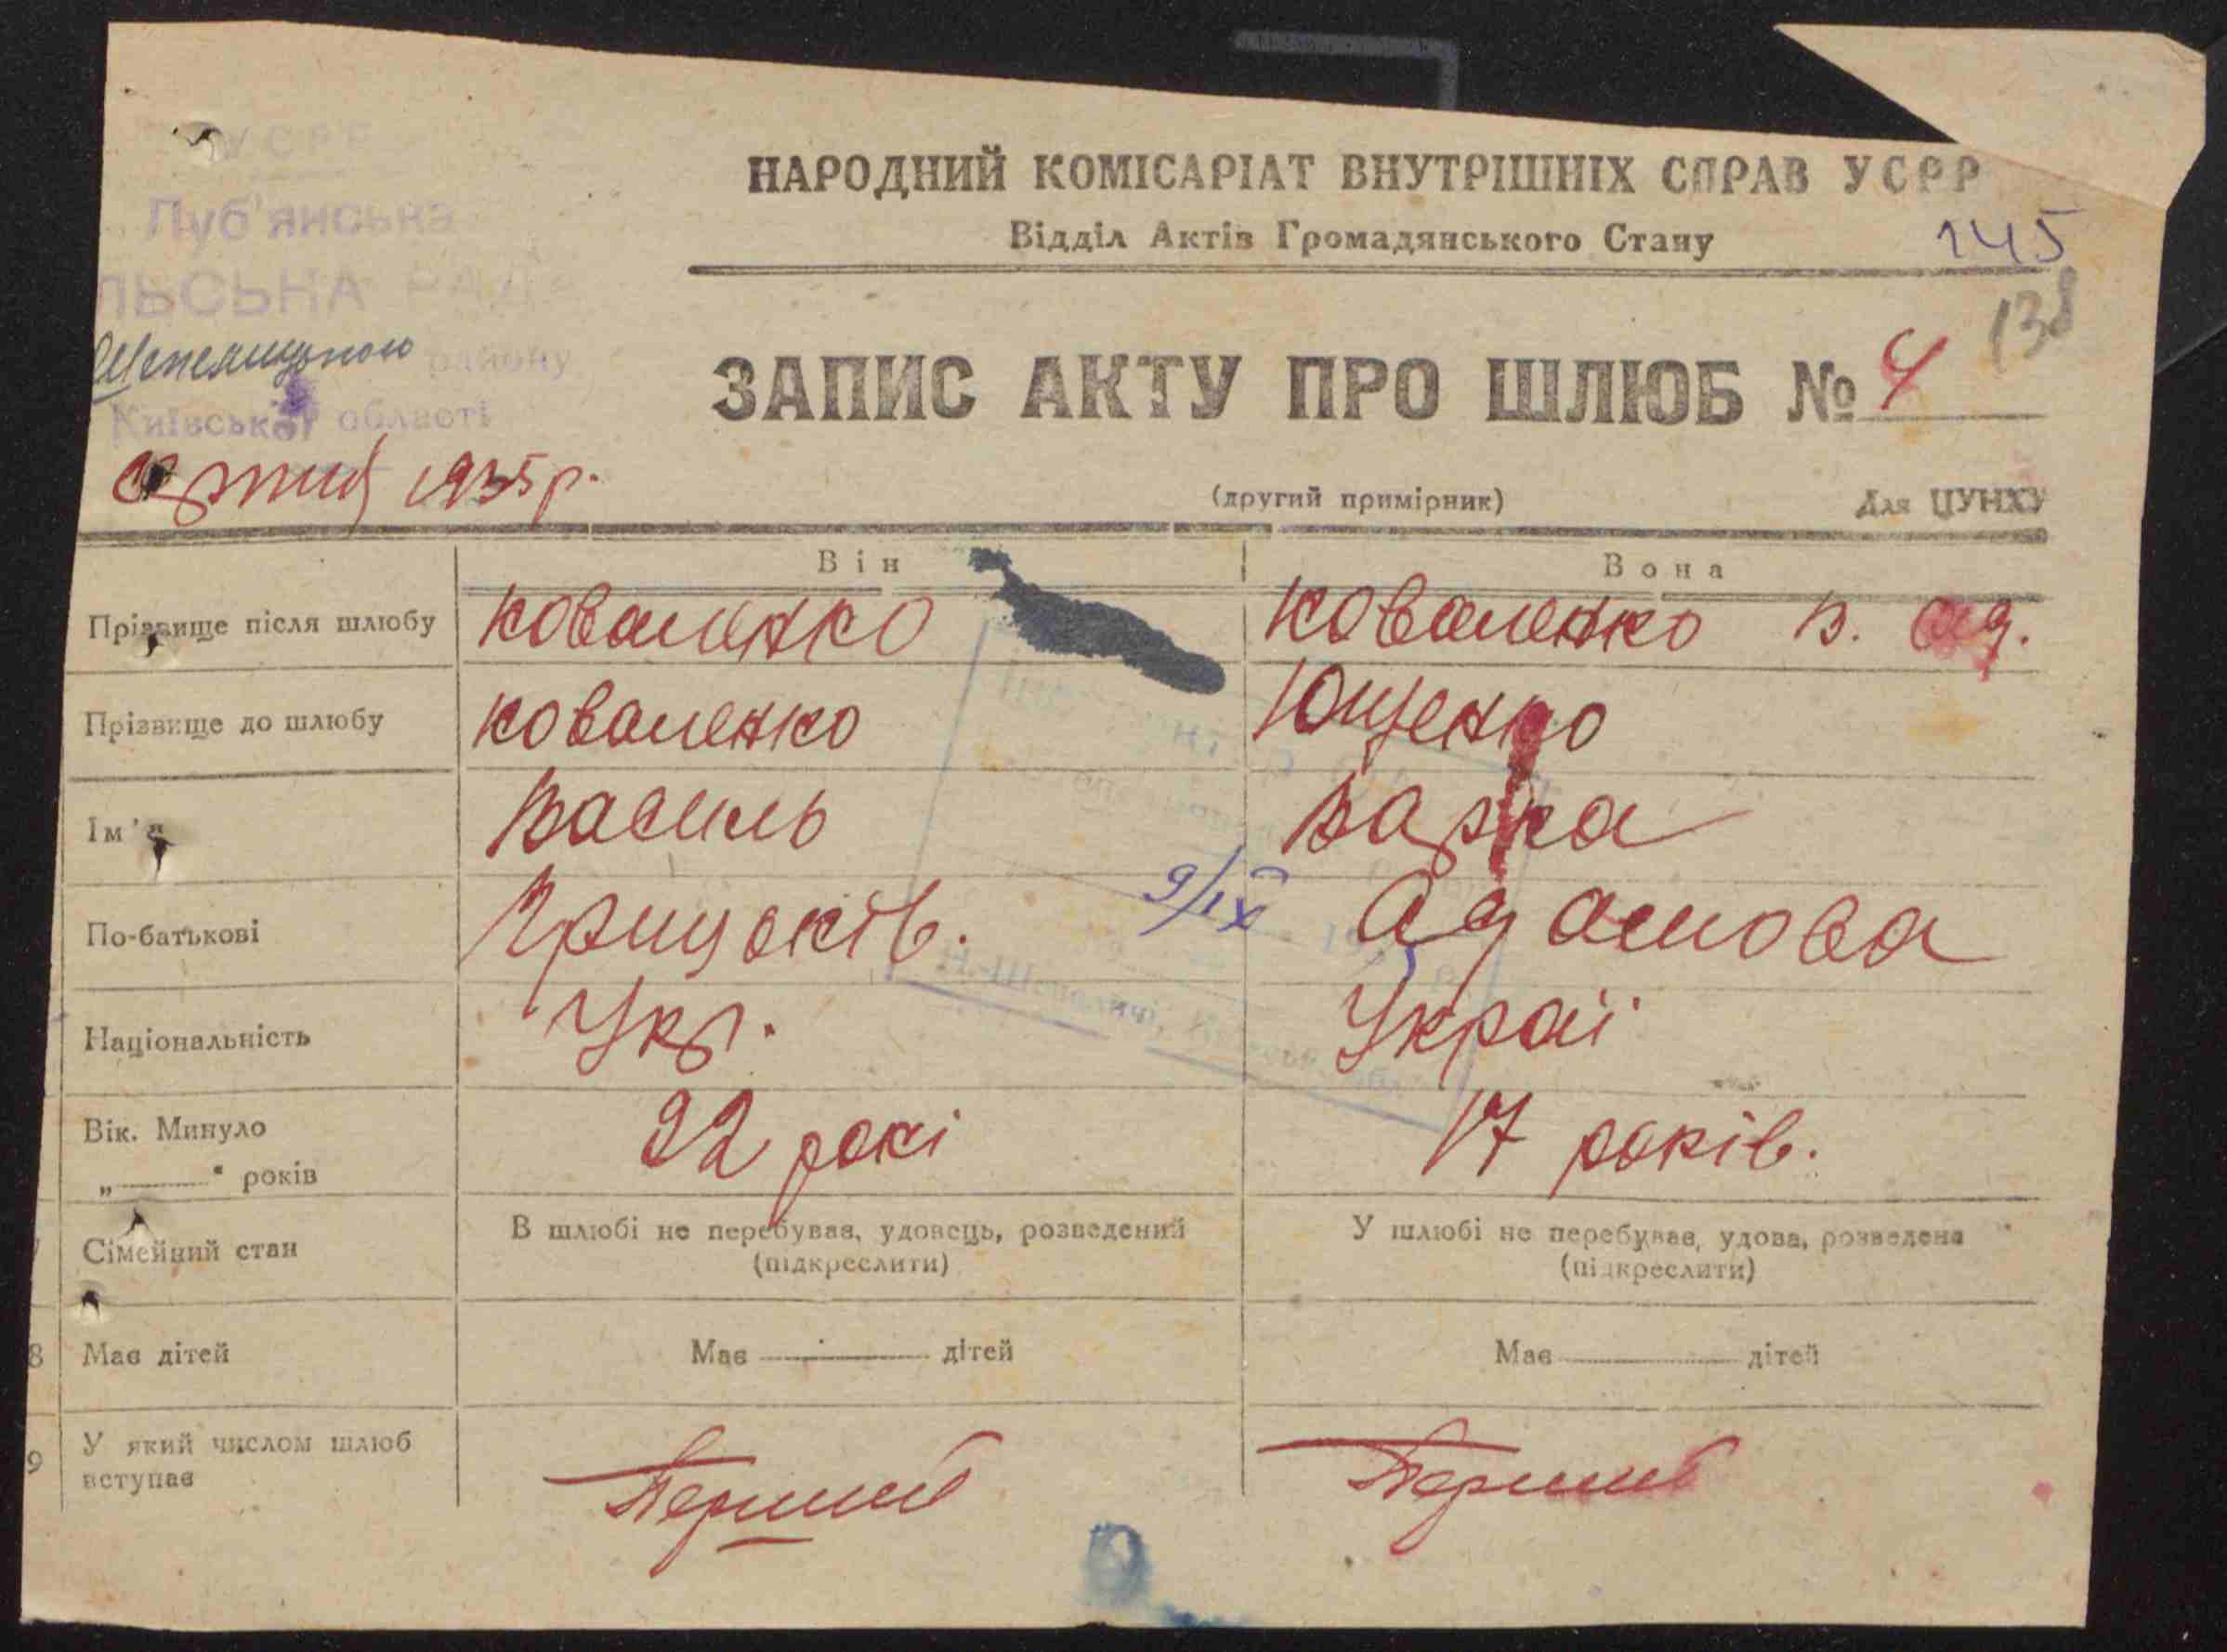 УСРР
Луб'янська
ЛЬСЬКА РАДА
Шепелицького району
Київської області
1935 р.
НАРОДНИЙ КОМІСАРІАТ ВНУТРІШНІХ СПРАВ УСРР
Відділ Актів Громадянського Стану
145
138
ЗАПИС АКТУ ПРО ШЛЮБ № 4
(другий примірник) Для ЦУНХУ
Він Вона
Прізвище після шлюбу Коваленко Коваленко В. Ад.
Прізвище до шлюбу Коваленко Ющенко
Ім'я Василь Варка
По-батькові Грицьків. 9/IX Адамова
Національність Укр. Украї
Вік. Минуло 22 рокі 17 років.
„ “ років
Сімейний стан В шлюбі не перебував, удовець, розведений У шлюбі не перебував, удова, розведена
(підкреслити) (підкреслити)
8 Має дітей Має дітей Має дітей
9 У який числом шлюб
вступає Перший Перший